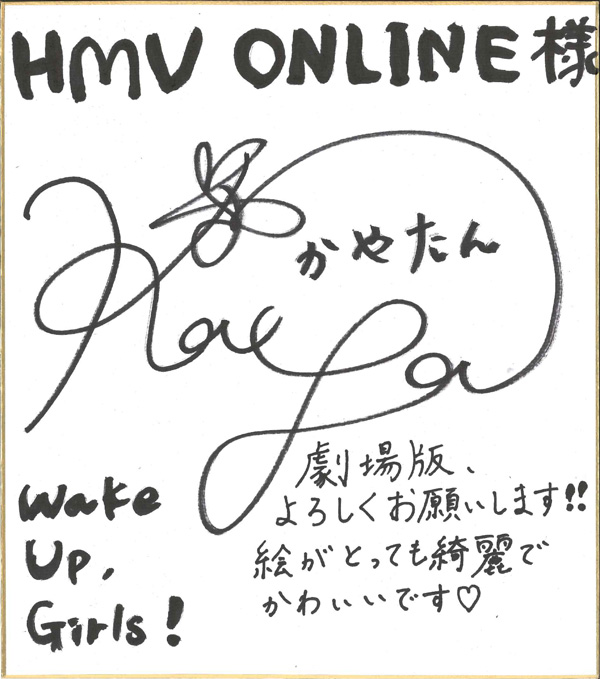 HMV ONLINE様
かやたん
Kaya
劇場版、
よろしくお願いします!!
絵がとっても綺麗で
かわいいです♡
Wake
Up,
Girls!